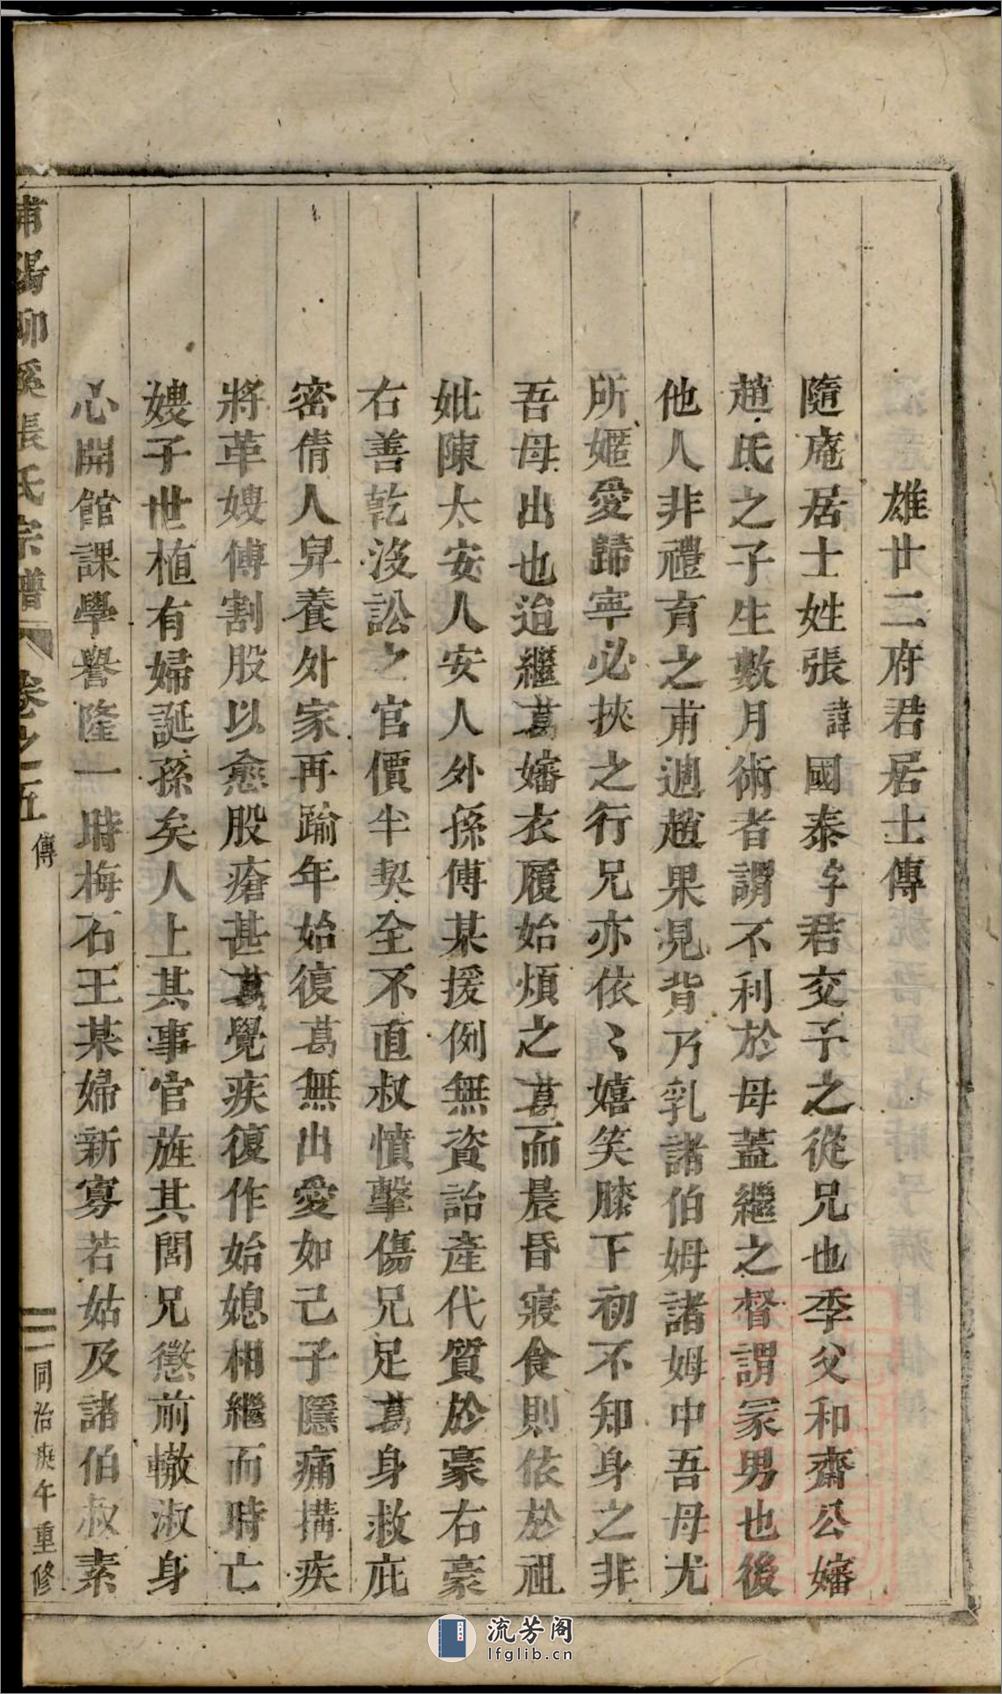 雄廿二府君居士傳
隨庵居士姓張諱國泰字君交予之從兄也季父和齋公嬸
趙氏之子生數月術者謂不利於母蓋繼之督謂冡男也後
他人非禮育之甫週趙果見背乃乳諸伯姆諸姆中吾母尤
所姬愛歸寧必挾之行兄亦依〻嬉笑膝下初不知身之非
吾母出也迨繼葛嬸衣履始煩之葛而晨昏寢食則依於祖
妣陳太安人安人外孫傅某援例無資詒產代質於豪右豪
右善乾沒訟之官價半契全不直叔憤擊傷兄足葛身救庇
密倩人舁養外家再踰年始復葛無出愛如己子隱痛搆疾
將革嫂傅割股以愈股瘡甚葛覺疾復作始媳相繼而時亡
嫂子世植有婦誕孫矣人上其事官旌其閭兄懲前轍淑身
心開館課學譽隆一時梅石王某婦新寡若姑及諸伯叔素
浦陽柳溪張氏宗譜 卷之五 傳 二 同治庚午重修
流芳阁
lfglib.cn